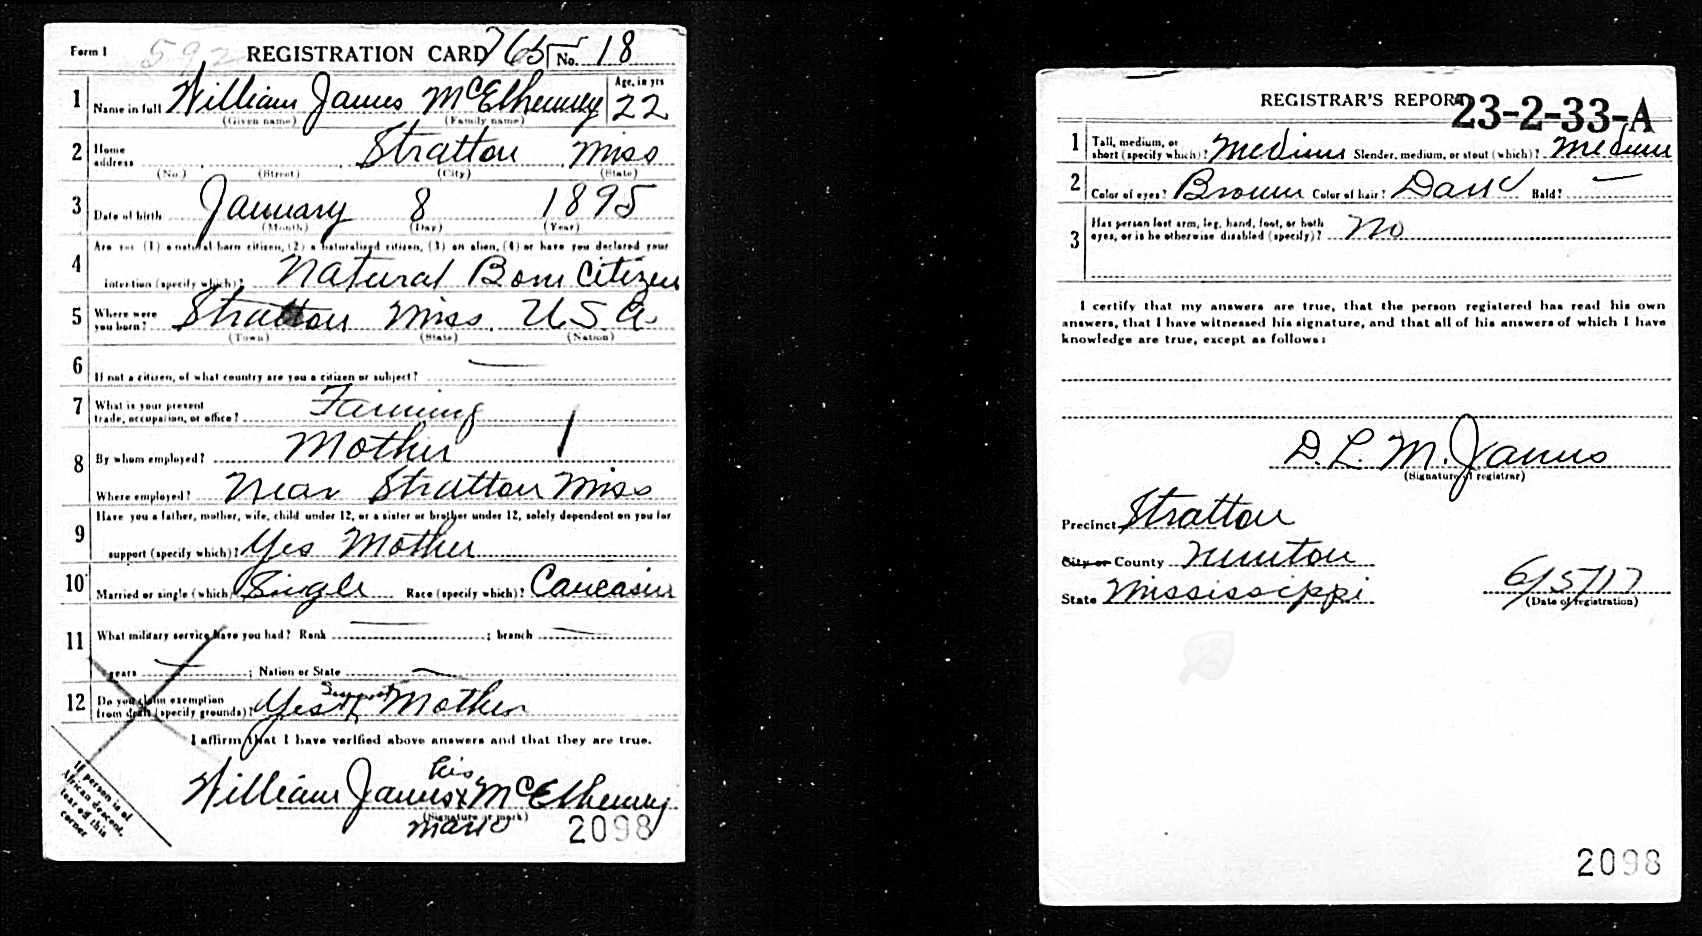 Form 1 592 REGISTRATION CARD 765 No. 18
1 Name in full William James McElhenney Age, in yrs 22
(Given name) (Family name)
2 Home address Stratton Miss
(No.) (Street) (City) (State)
3 Date of birth January 8 1895
(Month) (Day) (Year)
4 Are you (1) a natural born citizen, (2) a naturalized citizen, (3) an alien, (4) or have you declared your
intention (specify which)? Natural Born Citizen
5 Where were you born? Stratton Miss. U.S.A.
(Town) (State) (Nation)
6 If not a citizen, of what country are you a citizen or subject? —
7 What is your present trade, occupation, or office? Farming
8 By whom employed? Mother
Where employed? Near Stratton Miss
9 Have you a father, mother, wife, child under 12, or a sister or brother under 12, solely dependent on you for
support (specify which)? Yes Mother
10 Married or single (which)? Single Race (specify which)? Caucasian
11 What military service have you had? Rank — ; branch —
years — ; Nation or State —
12 Do you claim exemption from draft (specify grounds)? Yes Support Mother
I affirm that I have verified above answers and that they are true.
William James his x mark McElhenney
(Signature or mark)
2098
If person is of
African descent,
tear off this
corner
REGISTRAR'S REPORT
23-2-33-A
1 Tall, medium, or short (specify which)? Medium Slender, medium, or stout (which)? Medium
2 Color of eyes? Brown Color of hair? Dark Bald? —
3 Has person lost arm, leg, hand, foot, or both
eyes, or is he otherwise disabled (specify)? No
I certify that my answers are true, that the person registered has read his own
answers, that I have witnessed his signature, and that all of his answers of which I have
knowledge are true, except as follows:
D. L. M. James
(Signature of registrar)
Precinct Stratton
City or County Newton
State Mississippi
6/5/17
(Date of registration)
2098